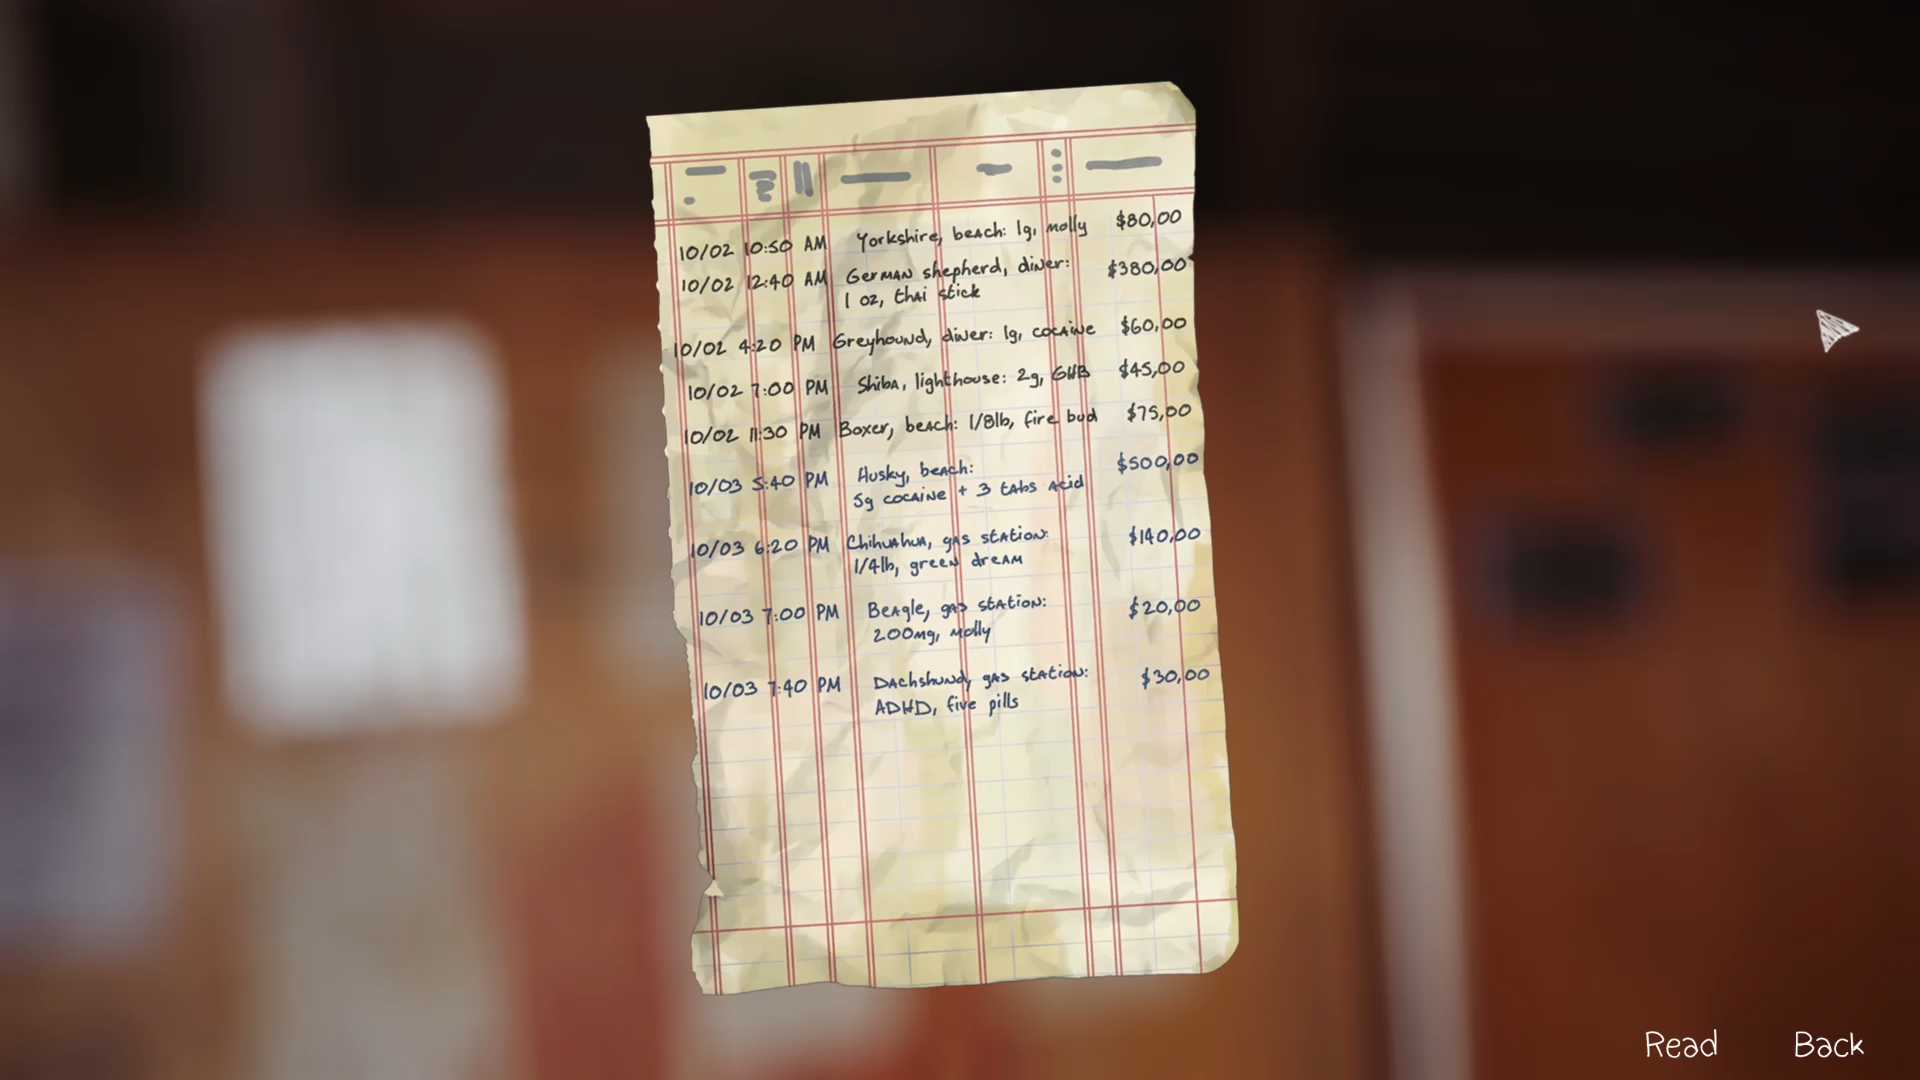 10/02 10:50 AM Yorkshire, beach: 1g, molly $80,00
10/02 12:40 AM German shepherd, diner: $380,00
1 oz, thai stick
10/02 4:20 PM Greyhound, diner: 1g, cocaine $60,00
10/02 7:00 PM Shiba, lighthouse: 2g, GHB $45,00
10/02 11:30 PM Boxer, beach: 1/8lb, fire bud $75,00
10/03 5:40 PM Husky, beach: $500,00
5g cocaine + 3 tabs acid
10/03 6:20 PM Chihuahua, gas station: $140,00
1/4lb, green dream
10/03 7:00 PM Beagle, gas station: $20,00
200mg, molly
10/03 7:40 PM Dachshund, gas station: $30,00
ADHD, five pills
Read Back